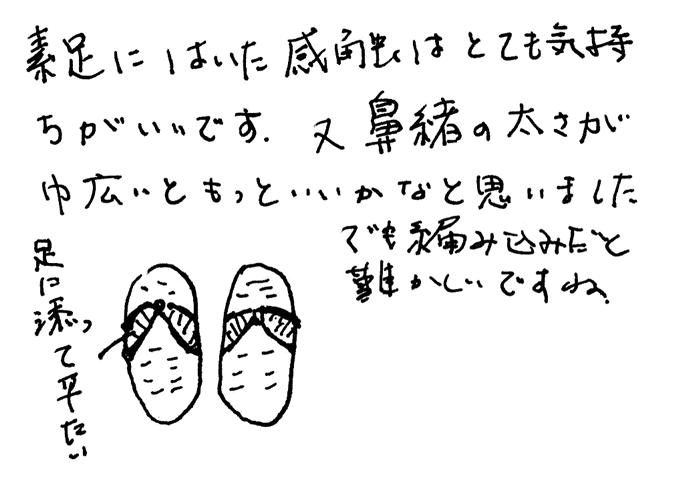 素足にはいた感触はとても気持
ちがいいです. 又鼻緒の太さが
巾広いともっといいかなと思いました
でも編み込みだと
難かしいですね。
足に添って平たい